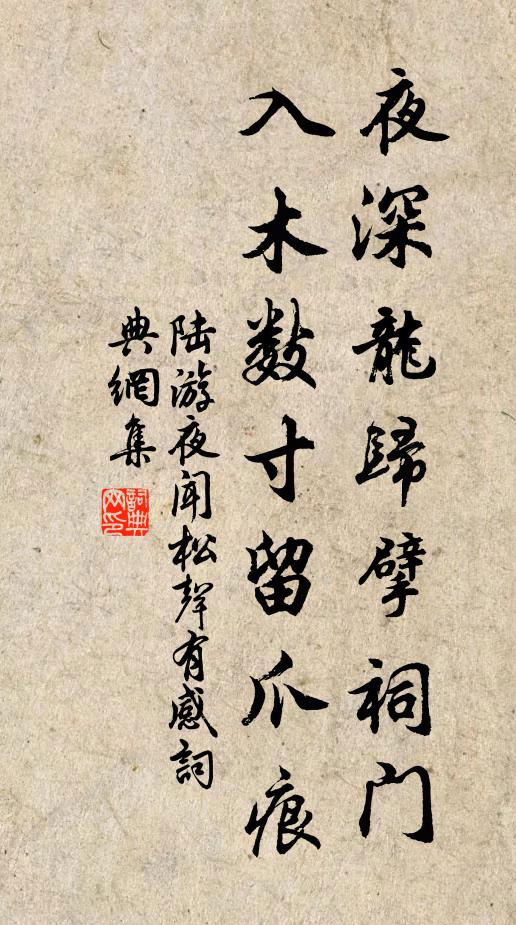 夜深龍歸擘祠门
入木数寸留爪痕
陆游夜闻松聲有感詞
典網集
詞典网印